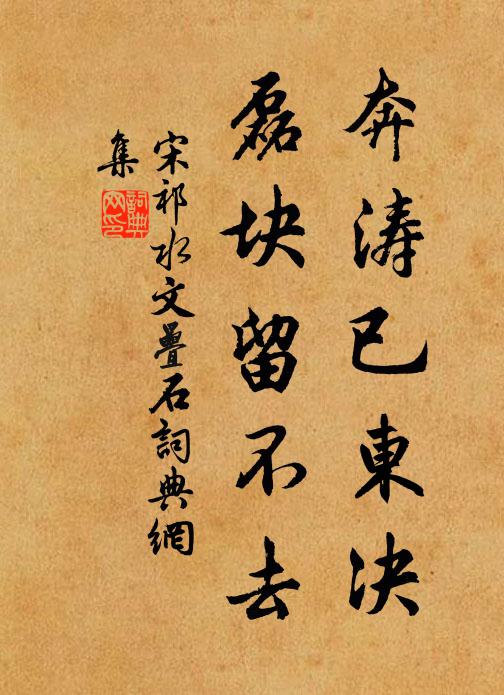 奔涛已東决
磊块留不去
宋祁水文疊石詞典網
集
詞典網印